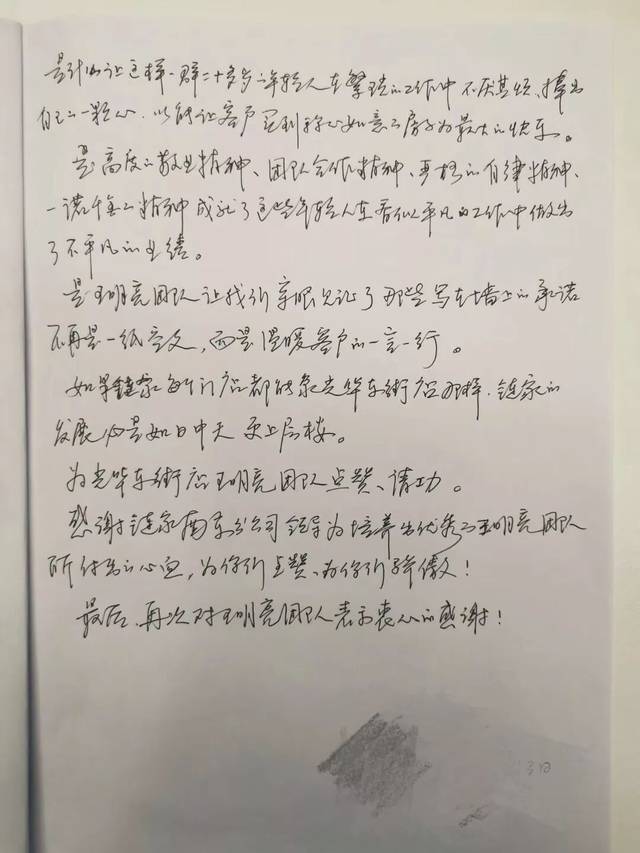 是什么让这样一群二十多岁的年轻人在繁琐的工作中不厌其烦、捧出
自己的一颗心.以能让客户买到称心如意的房子为最大的快乐。
是高度的敬业精神、团队合作精神、严格的自律精神、
一诺千金的精神成就了这些年轻人在看似平凡的工作中做出
了不平凡的业绩。
是王明亮团队让我们亲眼见证了那些写在墙上的承诺
不再是一纸空文,而是温暖客户的一言一行。
如果链家每个门店都能象光华东街店那样.链家的
发展必是如日中天更上层楼。
为光华东街店王明亮团队点赞、请功。
感谢链家南京分公司领导为培养出优秀的王明亮团队
所付出的心血,为你们点赞、为你们骄傲!
最后、再次对王明亮团队表示衷心的感谢!
3日